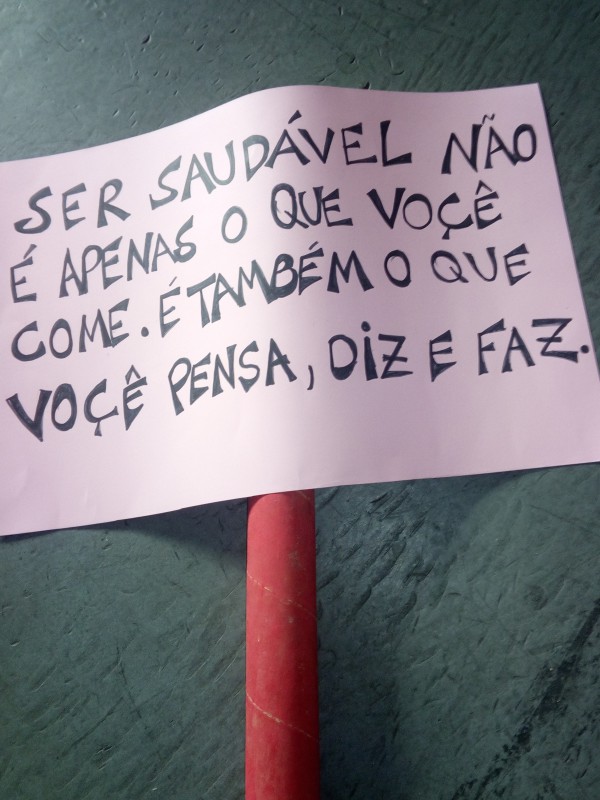 SER SAUDÁVEL NÃO
É APENAS O QUE VOÇÊ
COME. É TAMBÉM O QUE
VOÇÊ PENSA, DIZ E FAZ.